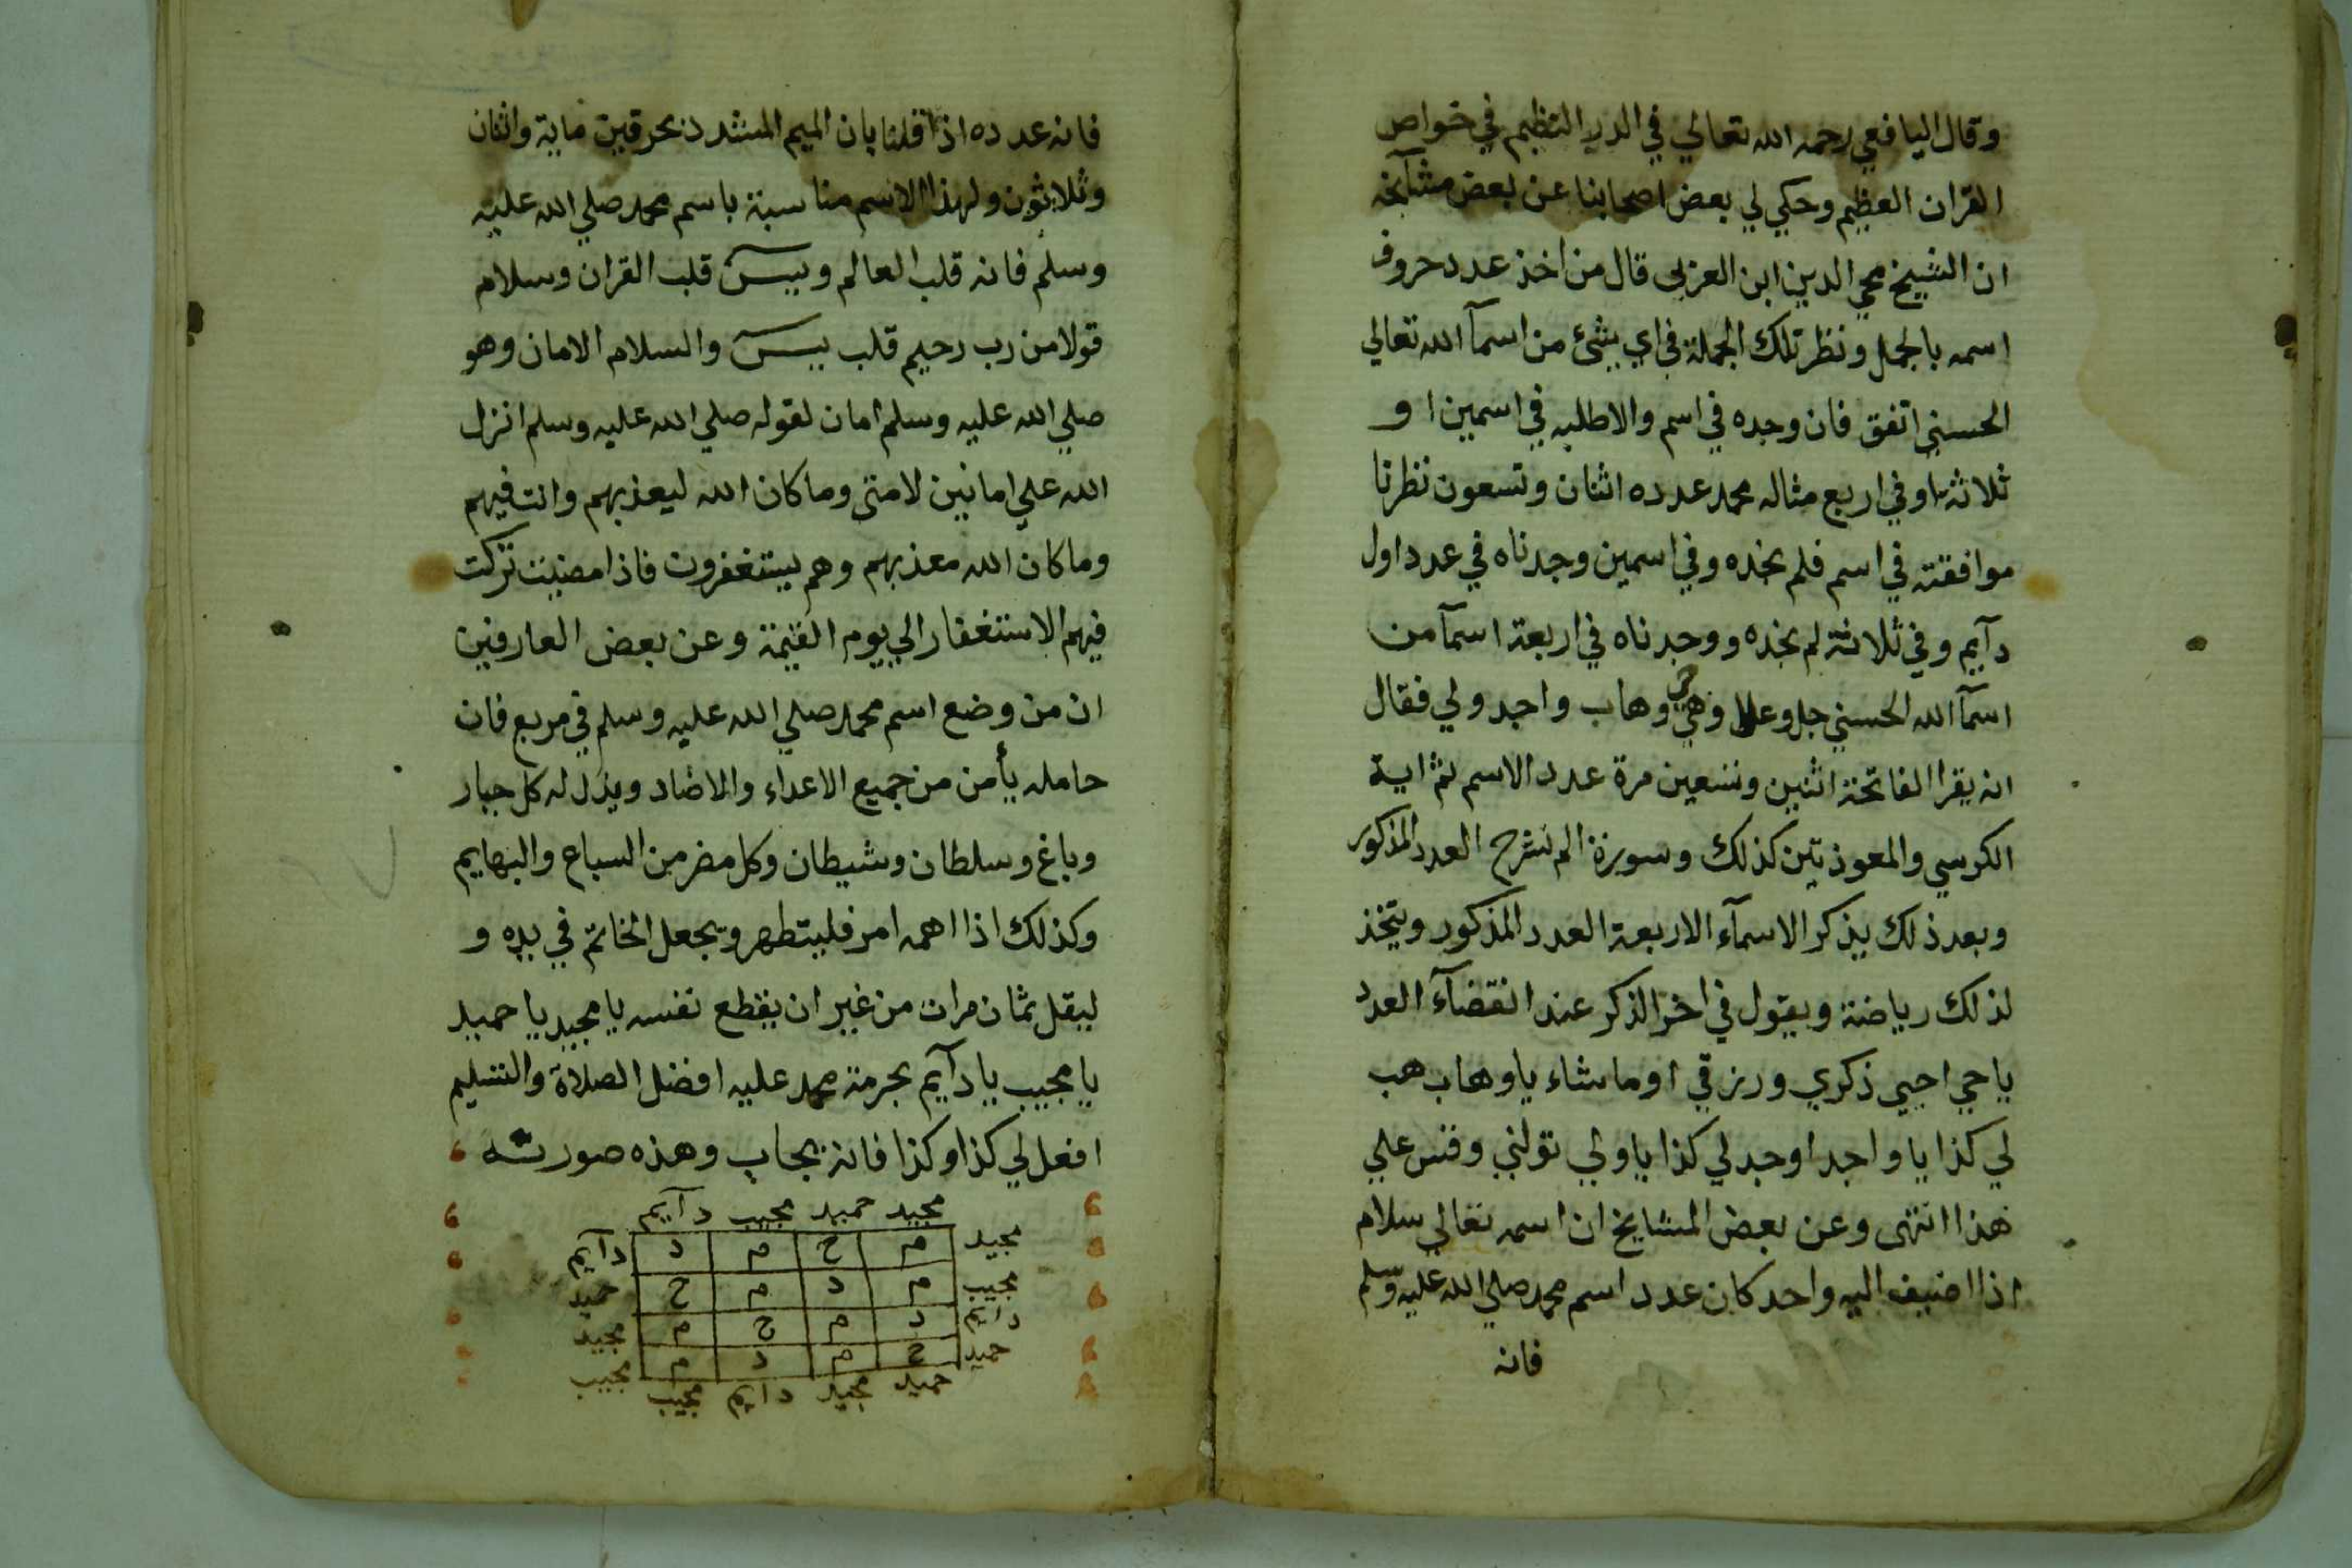 وقال اليافعي رحمه الله تعالي في الدر النظيم في خواص
القران العظيم وحكي لي بعض اصحابنا عن بعض مشآيخه
ان الشيخ محي الدين ابن العربي قال من اخذ عدد حروف
اسمه بالجمل ونظر تلك الجملة في اي شئ من اسمآ الله تعالي
الحسني اتفق فان وجده في اسم والا طلبه في اسمين او
ثلاثة او في اربع مثاله محمد عدده اثنان وتسعون نظرنا
موافقته في اسم فلم نجده وفي اسمين وجدناه في عدد اول
دآيم وفي ثلاثة لم نجده ووجدناه في اربعة اسمآ من
اسمآ الله الحسني جل وعلا وهي حي وهاب واجد ولي فقال
انه يقرا الفاتحة اثنين وتسعين مرة عدد الاسم ثم اية
الكرسي والمعوذتين كذلك وسورة الم نشرح العدد المذكور
وبعد ذلك يذكر الاسمآء الاربعة العدد المذكور ويتخذ
لذلك رياضة ويقول في اخر الذكر عند انقضآء العدد
ياحي احيي ذكري ورزقي اوما شاء ياوهاب هب
لي كذا يا واجد اوجد لي كذا ياولي تولني وقس علي
هذا انتهى وعن بعض المشايخ ان اسمه تعالي سلام
اذا اضيف اليه واحد كان عدد اسم محمد صلي الله عليه وسلم
فانه
فانه عدده اذا قلنا بان الميم المشدد بحرفين ماية واثنان
وثلاثون ولهذا الاسم مناسبة باسم محمد صلي الله عليه
وسلم فانه قلب العالم ويس قلب القران وسلام
قولا من رب رحيم قلب يس والسلام الامان وهو
صلي الله عليه وسلم امان لقوله صلي الله عليه وسلم انزل
الله علي امانين لامتي وما كان الله ليعذبهم وانت فيهم
وما كان الله معذبهم وهم يستغفرون فاذا مضيت تركت
فيهم الاستغفار الي يوم القيمة وعن بعض العارفين
ان من وضع اسم محمد صلي الله عليه وسلم في مربع فان
حامله يأمن من جميع الاعداء والاضاد ويذل له كل جبار
وباغ وسلطان وشيطان وكل مضر من السباع والبهايم
وكذلك اذا اهمه امر فليتطهر ويجعل الخاتم في يده و
ليقل ثمان مرات من غير ان يقطع نفسه يا مجيد يا حميد
يا مجيب يا دآيم بحرمة محمد عليه افضل الصلاة والتسليم
افعل لي كذا وكذا فانه يجاب وهذه صورته
مجيد حميد مجيب دآيم
مجيد م ح م د دآيم
مجيب م د م ح حميد
دايم د م ح م مجيد
حميد ح م د م مجيب
حميد مجيد دايم مجيب